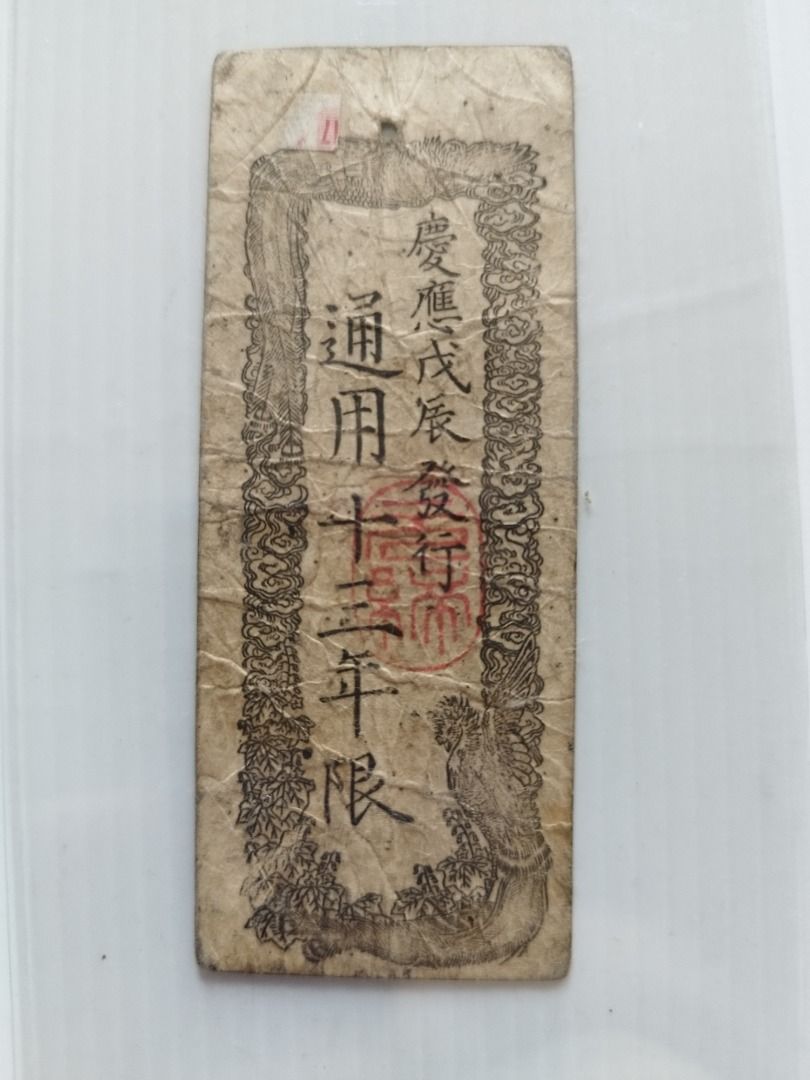 慶應戊辰發行
通用十三年限